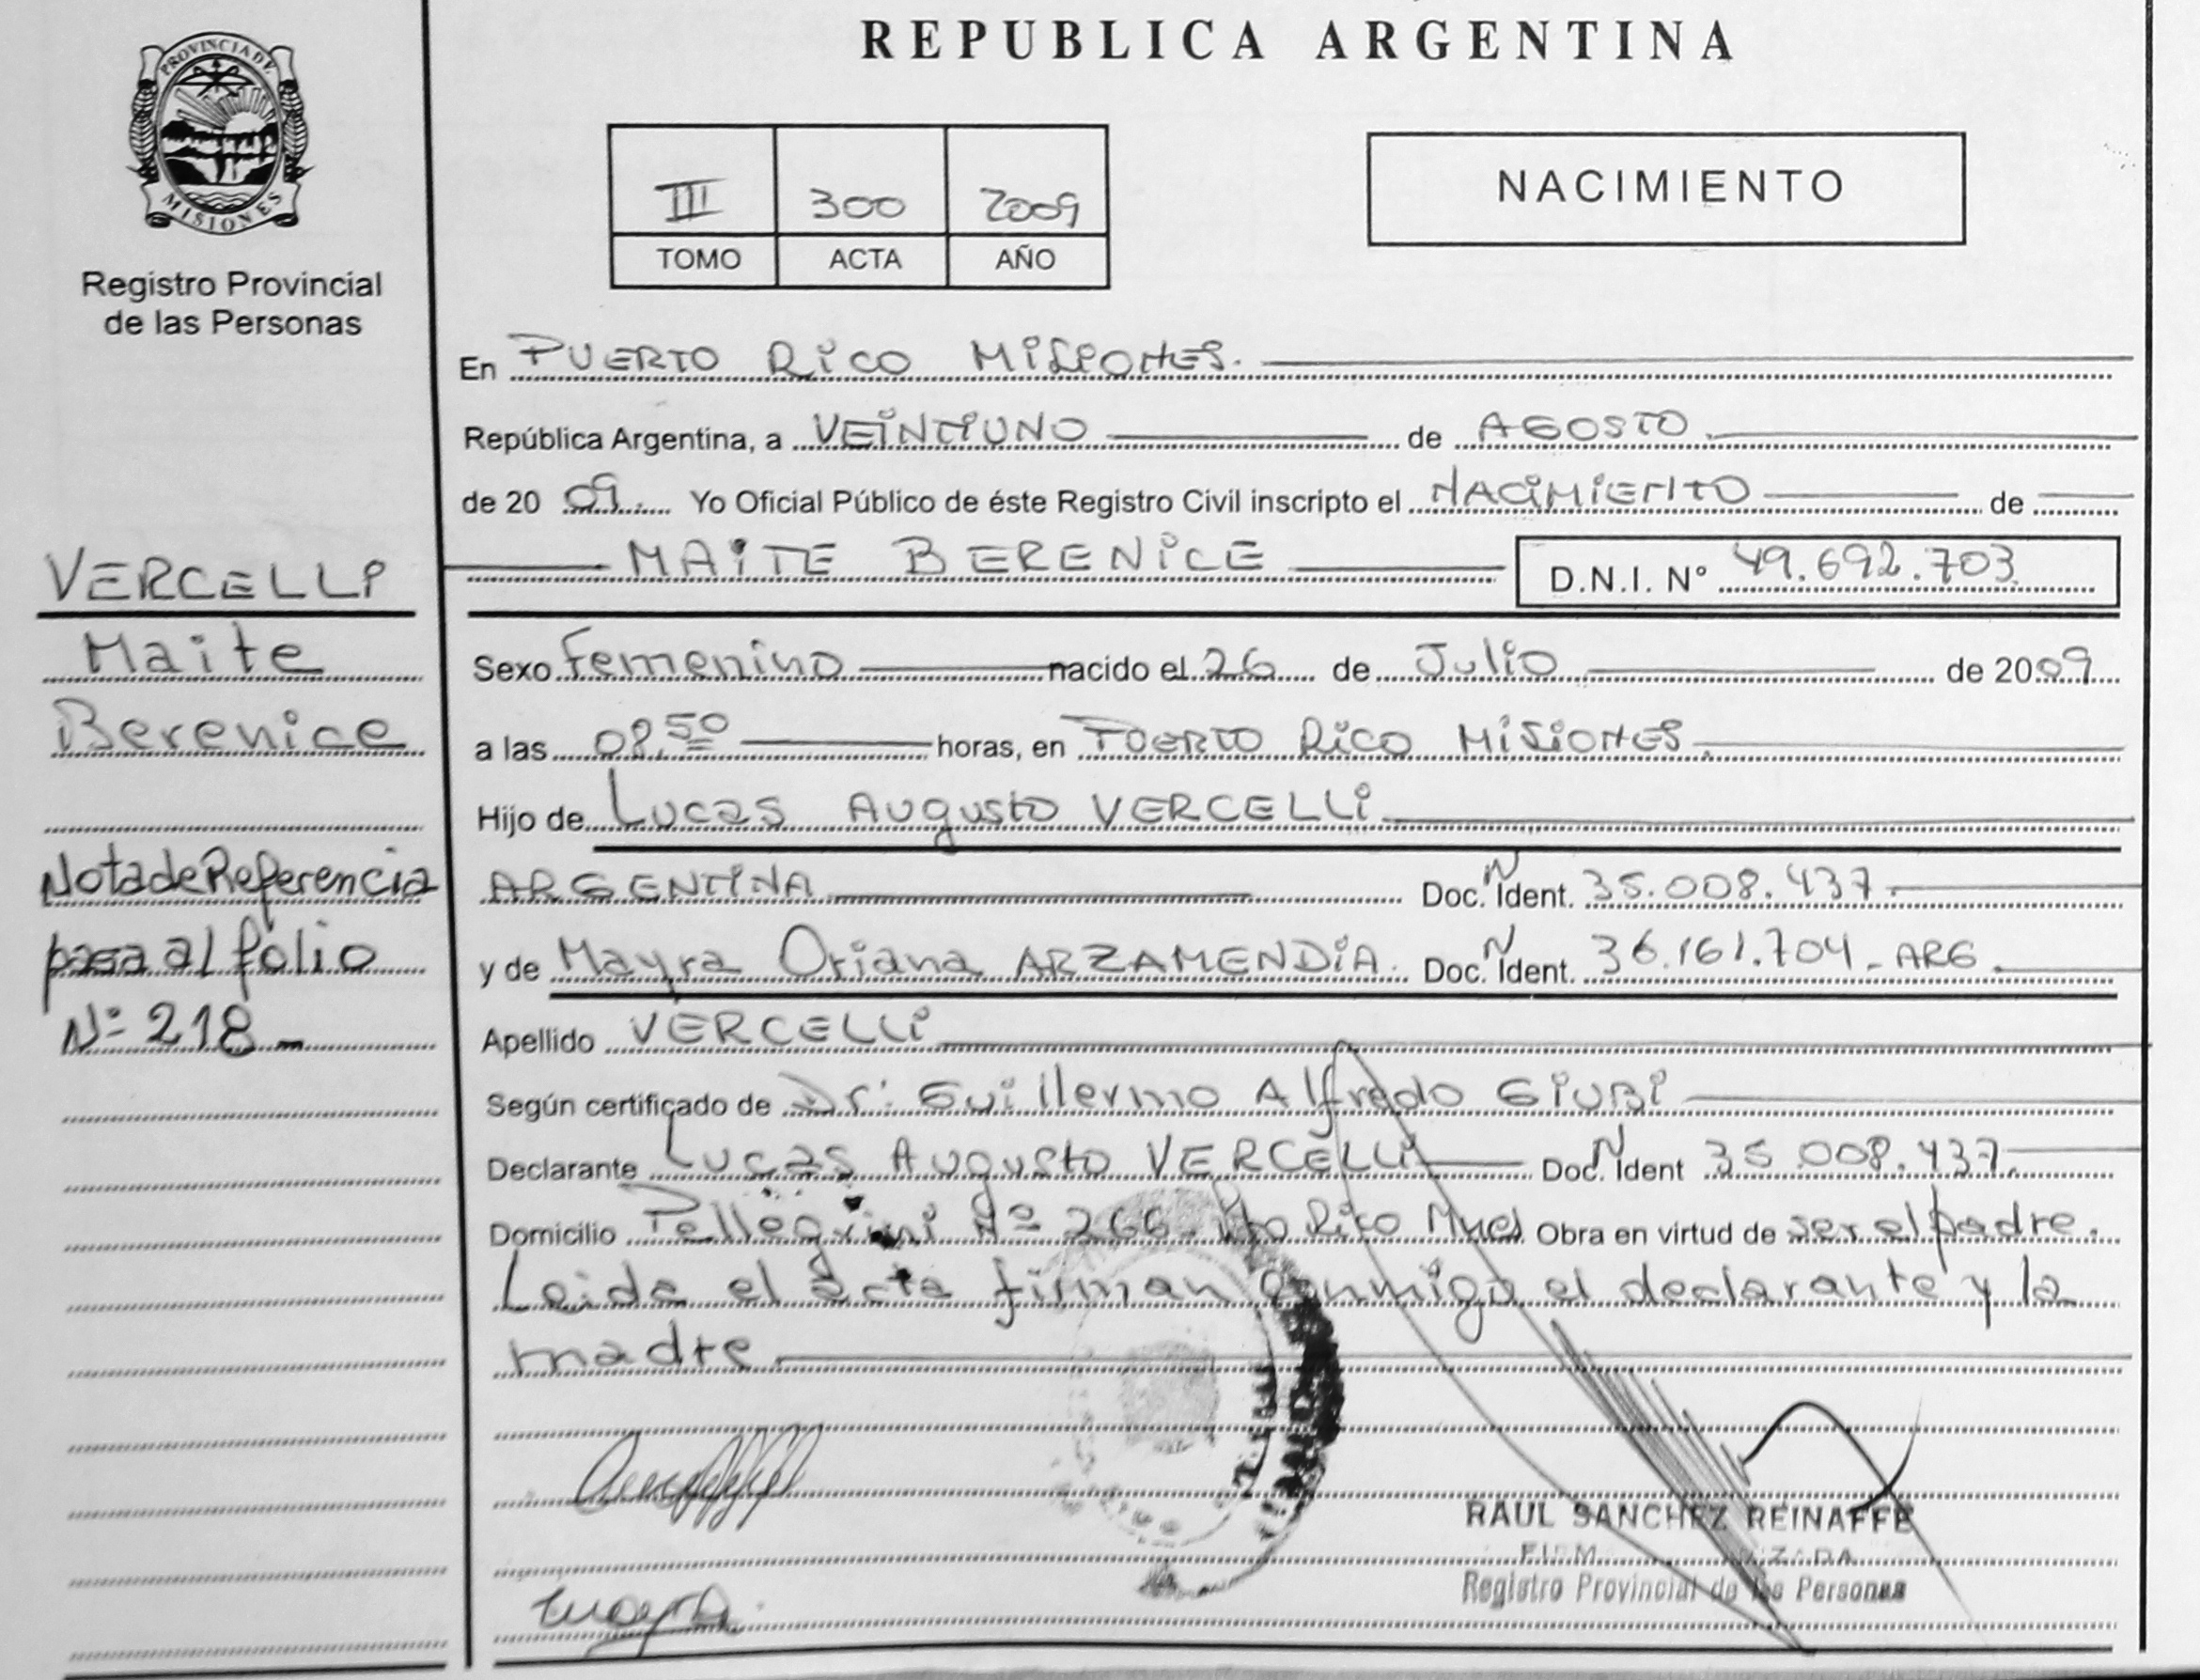 REPUBLICA ARGENTINA
PROVINCIA DE
MISIONES
Registro Provincial
de las Personas
III 300 2009
TOMO ACTA AÑO
NACIMIENTO
En PUERTO RICO MISIONES.
República Argentina, a VEINTIUNO de AGOSTO.
de 20 09. Yo Oficial Público de éste Registro Civil inscripto el NACIMIENTO de
MAITE BERENICE D.N.I. N° 49.692.703
VERCELLI
Maite
Berenice
Nota de Referencia
pasa al folio
Nº 218 -
Sexo Femenino nacido el 26 de Julio de 2009
a las 08.50 horas, en PUERTO RICO MISIONES.
Hijo de Lucas Augusto VERCELLI
ARGENTINA Doc. N Ident. 35.008.437.
y de Mayra Oriana ARZAMENDIA. Doc. N Ident. 36.161.704 - ARG.
Apellido VERCELLI
Según certificado de Dr. Guillermo Alfredo GIUBI
Declarante Lucas Augusto VERCELLI Doc. N Ident 35.008.437.
Domicilio Pellegrini Nº 266 Pto Rico Mnes Obra en virtud de ser el padre.
Leida el acta firman conmigo el declarante y la
madre
RAUL SANCHEZ REINAFFE
Registro Provincial de las Personas
Mayra